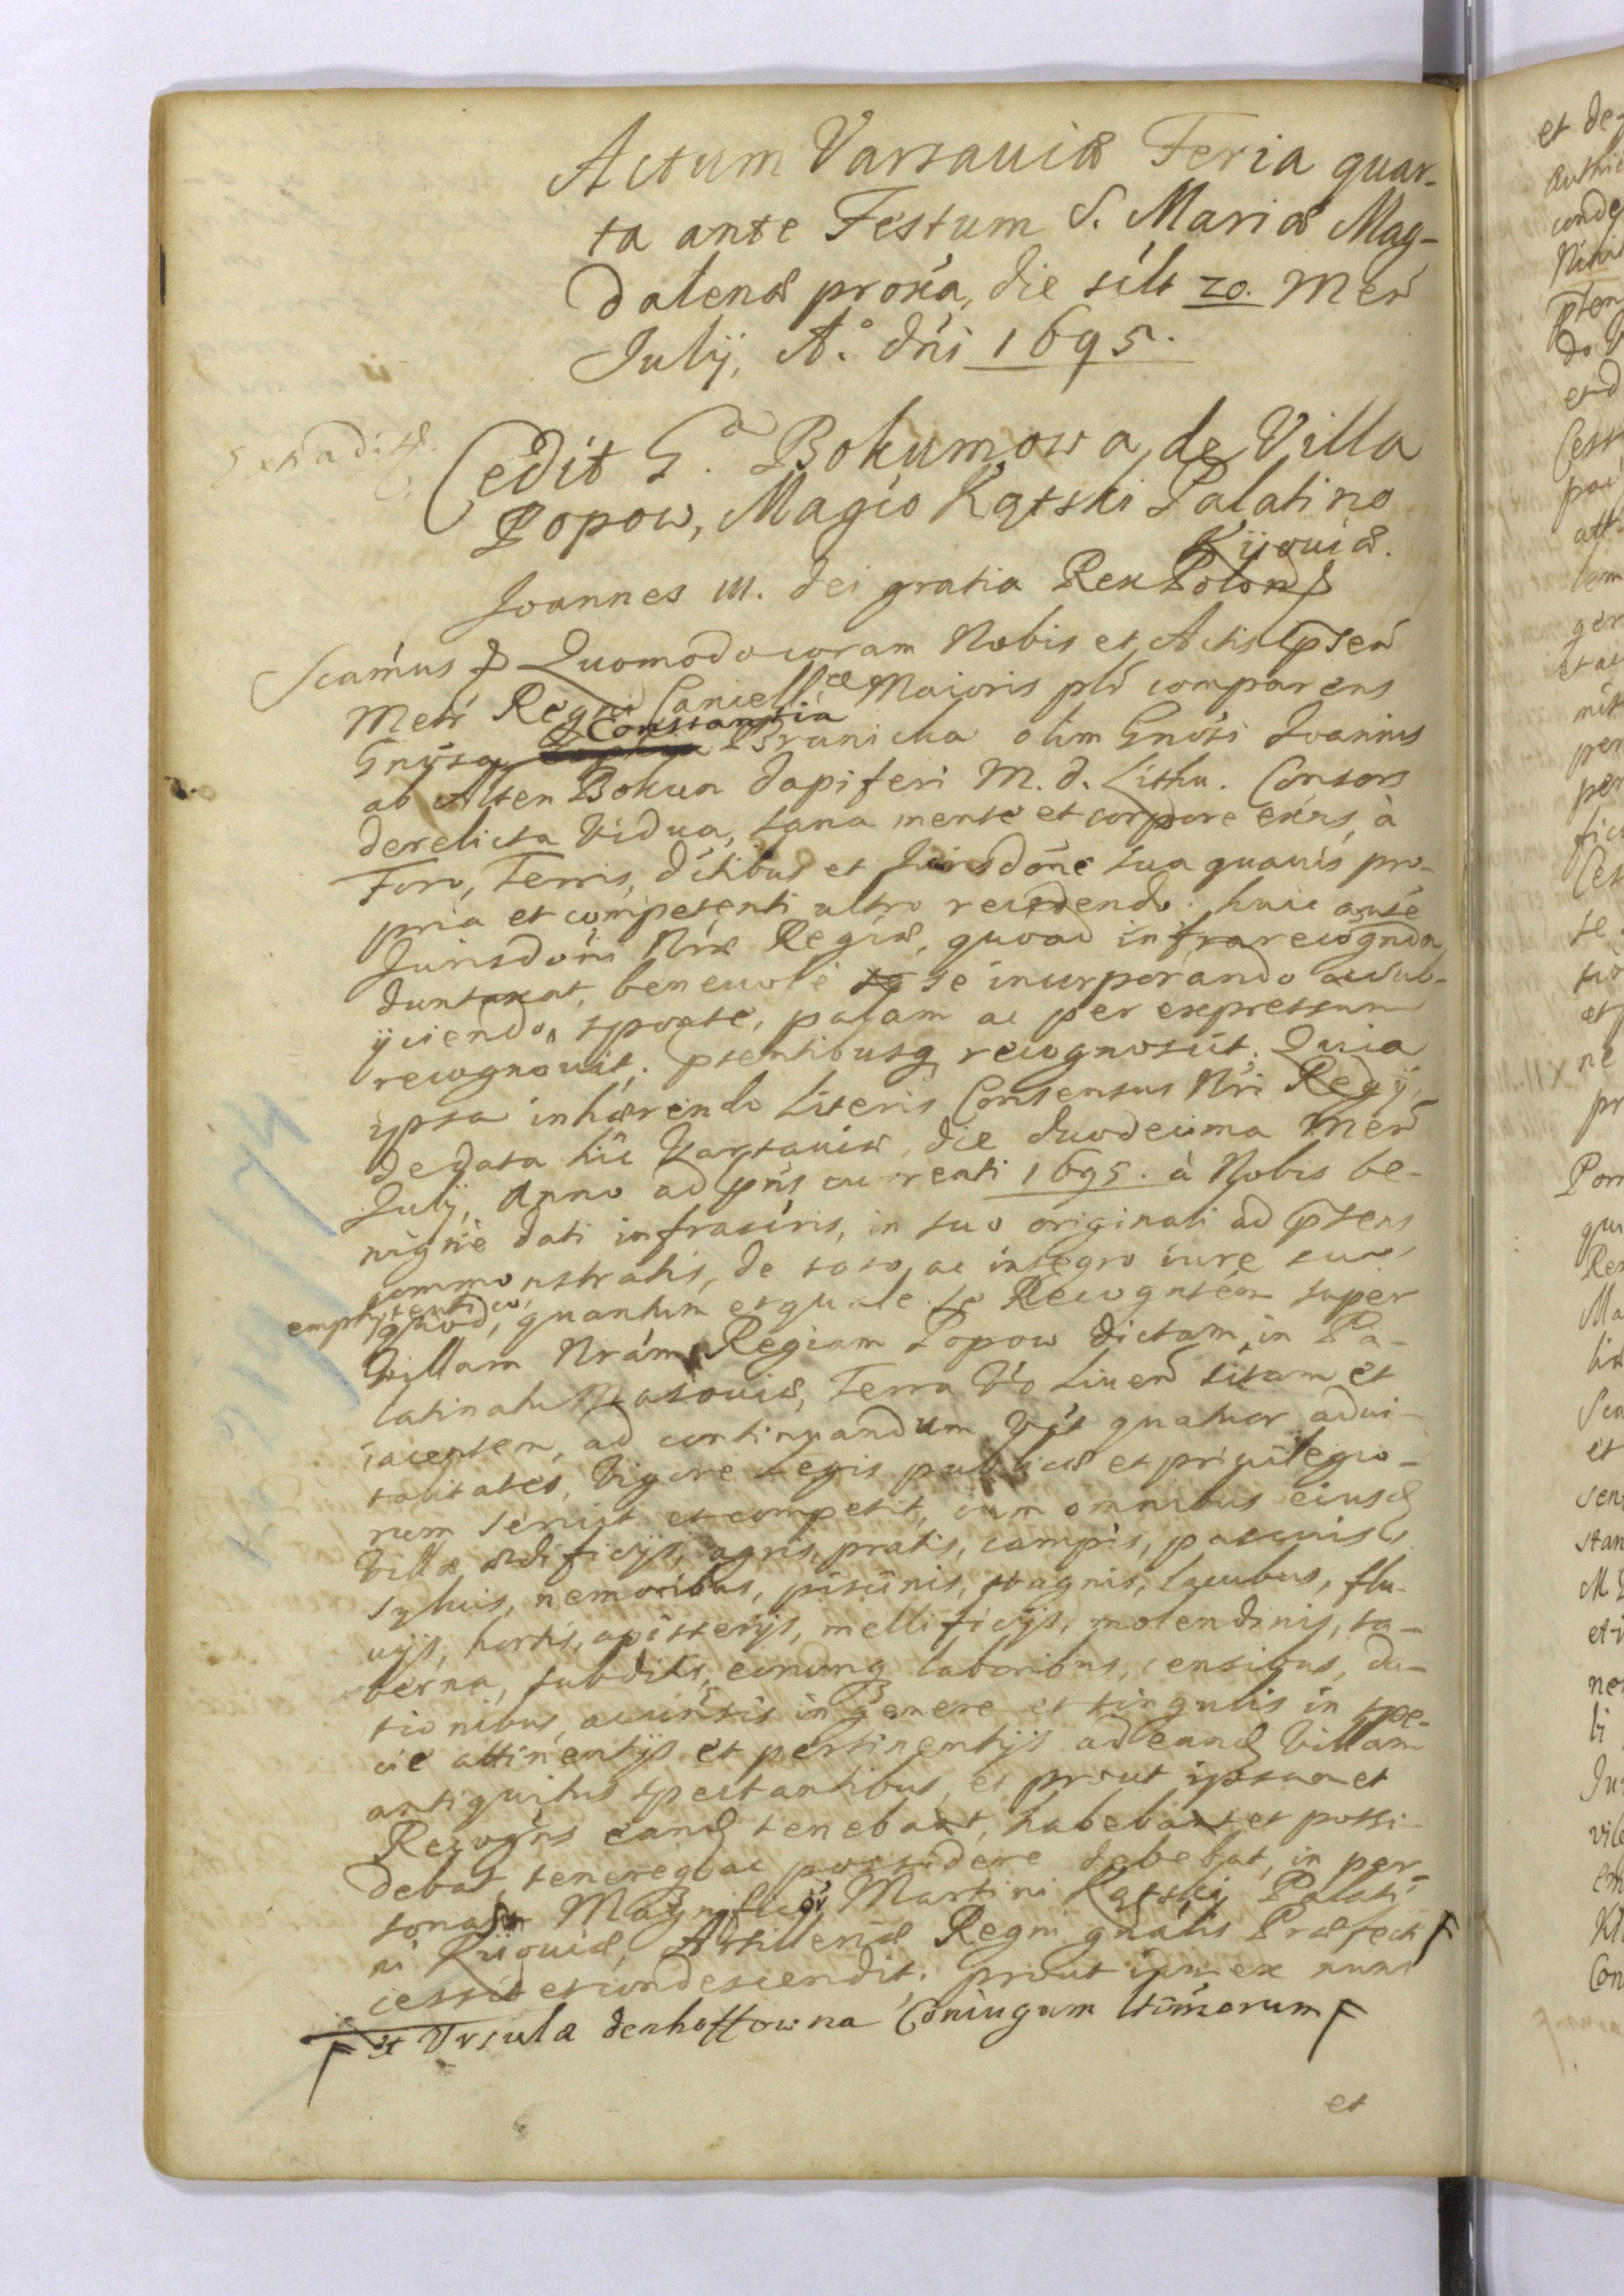 Actum Varsaviæ Feria quar-
ta ante Festum S. Mariæ Mag-
dalenæ proxa, die silt 20. Men
July, A.° dni 1695.
Extradit
Cedit G.a Bokumowa de Villa
Popow, Magco Kątski Palatino
Kijoviæ.
Joannes III. Dei gratia Rex Polon
Scamus Quomodo coram Nobis et Actis psen
Metr Regni Cancellæ Maioris plr comparens
Gnosa Constantia Branicka olim Gnosi Joannis
ab Alten Bokun Dapiferi M. D. Lithu. Consors
derelicta Vidua, sana mente et corpore exns, à
Foro, Terris, dstibus et Jurisdone sua quavis pro-
pria et competenti ultro recedendo. huic autè
Jurisdoni Nræ Regiæ, quoad infrarecognda
duntaxat, benevolè se incorporando ac sub-
ijciendo, sponte, palam ac per expressum
recognovit, psentibusq recognoscit. Quia
ipsa inhærendo Literis Consensus Nri Regij,
de data hîc Varsaviæ, die duodecima Men
July, Anno ad pns currenti 1695. à Nobis be-
nignè dati infrascris, in suo originali ad psens
commonstratis, de toto ac integro iure suo
emphyteutico,
quod, quantum et quale se Recognten super
Villam Nram Regiam Popow dictam, in Pa-
latinatu Masoviæ, Terra Vro Liven sitam et
iacentem, ad continuandum Vst quatuor advi-
talitates, Vigore Legis publicæ et privilegio-
rum servit et competit, cum omnibus eiusd
Villæ ædificijs, agris, pratis, campis, pascuis
sylvis, nemoribus, piscinis, stagnis, lacubus, flu-
vijs, hortis, apisterijs, mellificijs, molendinis, ta-
berna, subditis, eorumq laboribus, censibus, da-
tionibus, ac cunctis in genere et singulis in spe-
cie attinentijs et pertinentijs ad eand Villam
antiquitus spectantibus, et prout ipsamet
Recogns eand tenebat, habebat et possi-
debat, tenereq ac possidere debebat, in per-
sonas Magnificor Martini Kątskij Palati-
ni Kijoviæ, Artilleriæ Regni gnalis Præfecti
cessit et condescendit, prout iam ex nunc
et Ursulæ denhoffowna Coniugum ltimorum
et